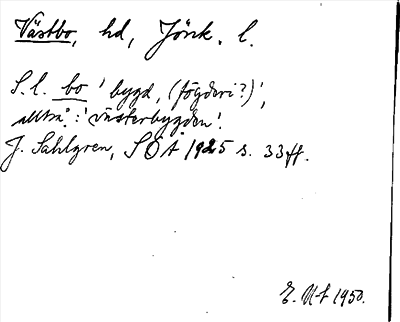 Västbo, hd, Jönk. l.
S.l. bo 'bygd, (fögderi?)',
alltså: 'västerbygden'.
J. Sahlgren, SOÅ 1925 s. 33ff.
E. U-t 1950.